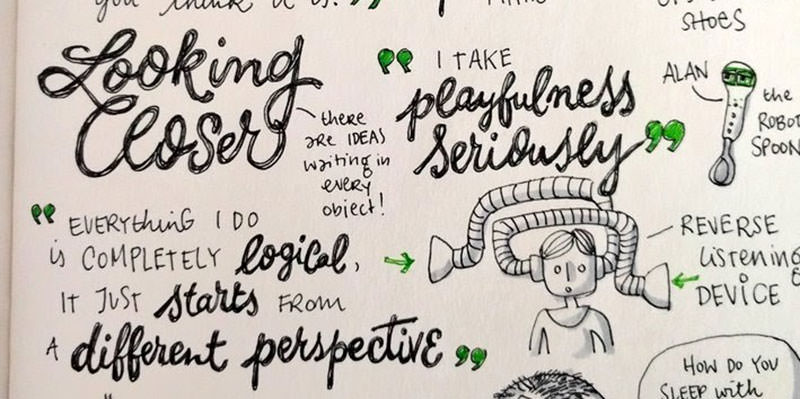 you think it is."
SHOES
Looking
Closer
there
are IDEAS
waiting in
every
object!
" I TAKE
playfulness
seriously "
ALAN
the
ROBOT
SPOON
" EVERYTHING I DO
is COMPLETELY logical,
IT JUST starts FROM
A different perspective "
REVERSE
Listening
DEVICE
HOW DO YOU
SLEEP with